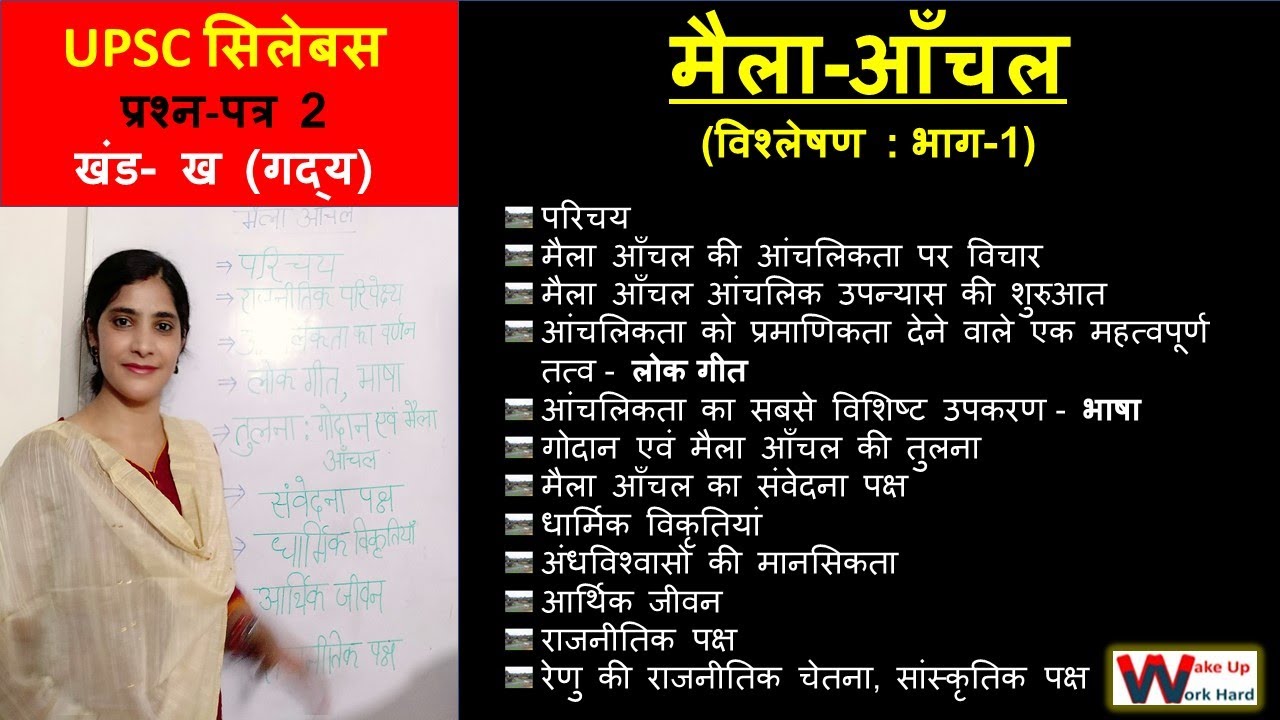 UPSC सिलेबस
प्रश्न-पत्र 2
खंड- ख (गद्य)
मैला आँचल
⇒ परिचय
⇒ राजनीतिक परिपेक्ष्य
का वर्णन
⇒ लोक गीत, भाषा
तुलना : गोदान एवं मैला
आँचल
संवेदना पक्ष
धार्मिक विकृतियां
आर्थिक जीवन
पक्ष
मैला-आँचल
(विश्लेषण : भाग-1)
परिचय
मैला आँचल की आंचलिकता पर विचार
मैला आँचल आंचलिक उपन्यास की शुरुआत
आंचलिकता को प्रमाणिकता देने वाले एक महत्वपूर्ण
तत्व - लोक गीत
आंचलिकता का सबसे विशिष्ट उपकरण - भाषा
गोदान एवं मैला आँचल की तुलना
मैला आँचल का संवेदना पक्ष
धार्मिक विकृतियां
अंधविश्वासों की मानसिकता
आर्थिक जीवन
राजनीतिक पक्ष
रेणु की राजनीतिक चेतना, सांस्कृतिक पक्ष
Wake Up
Work Hard